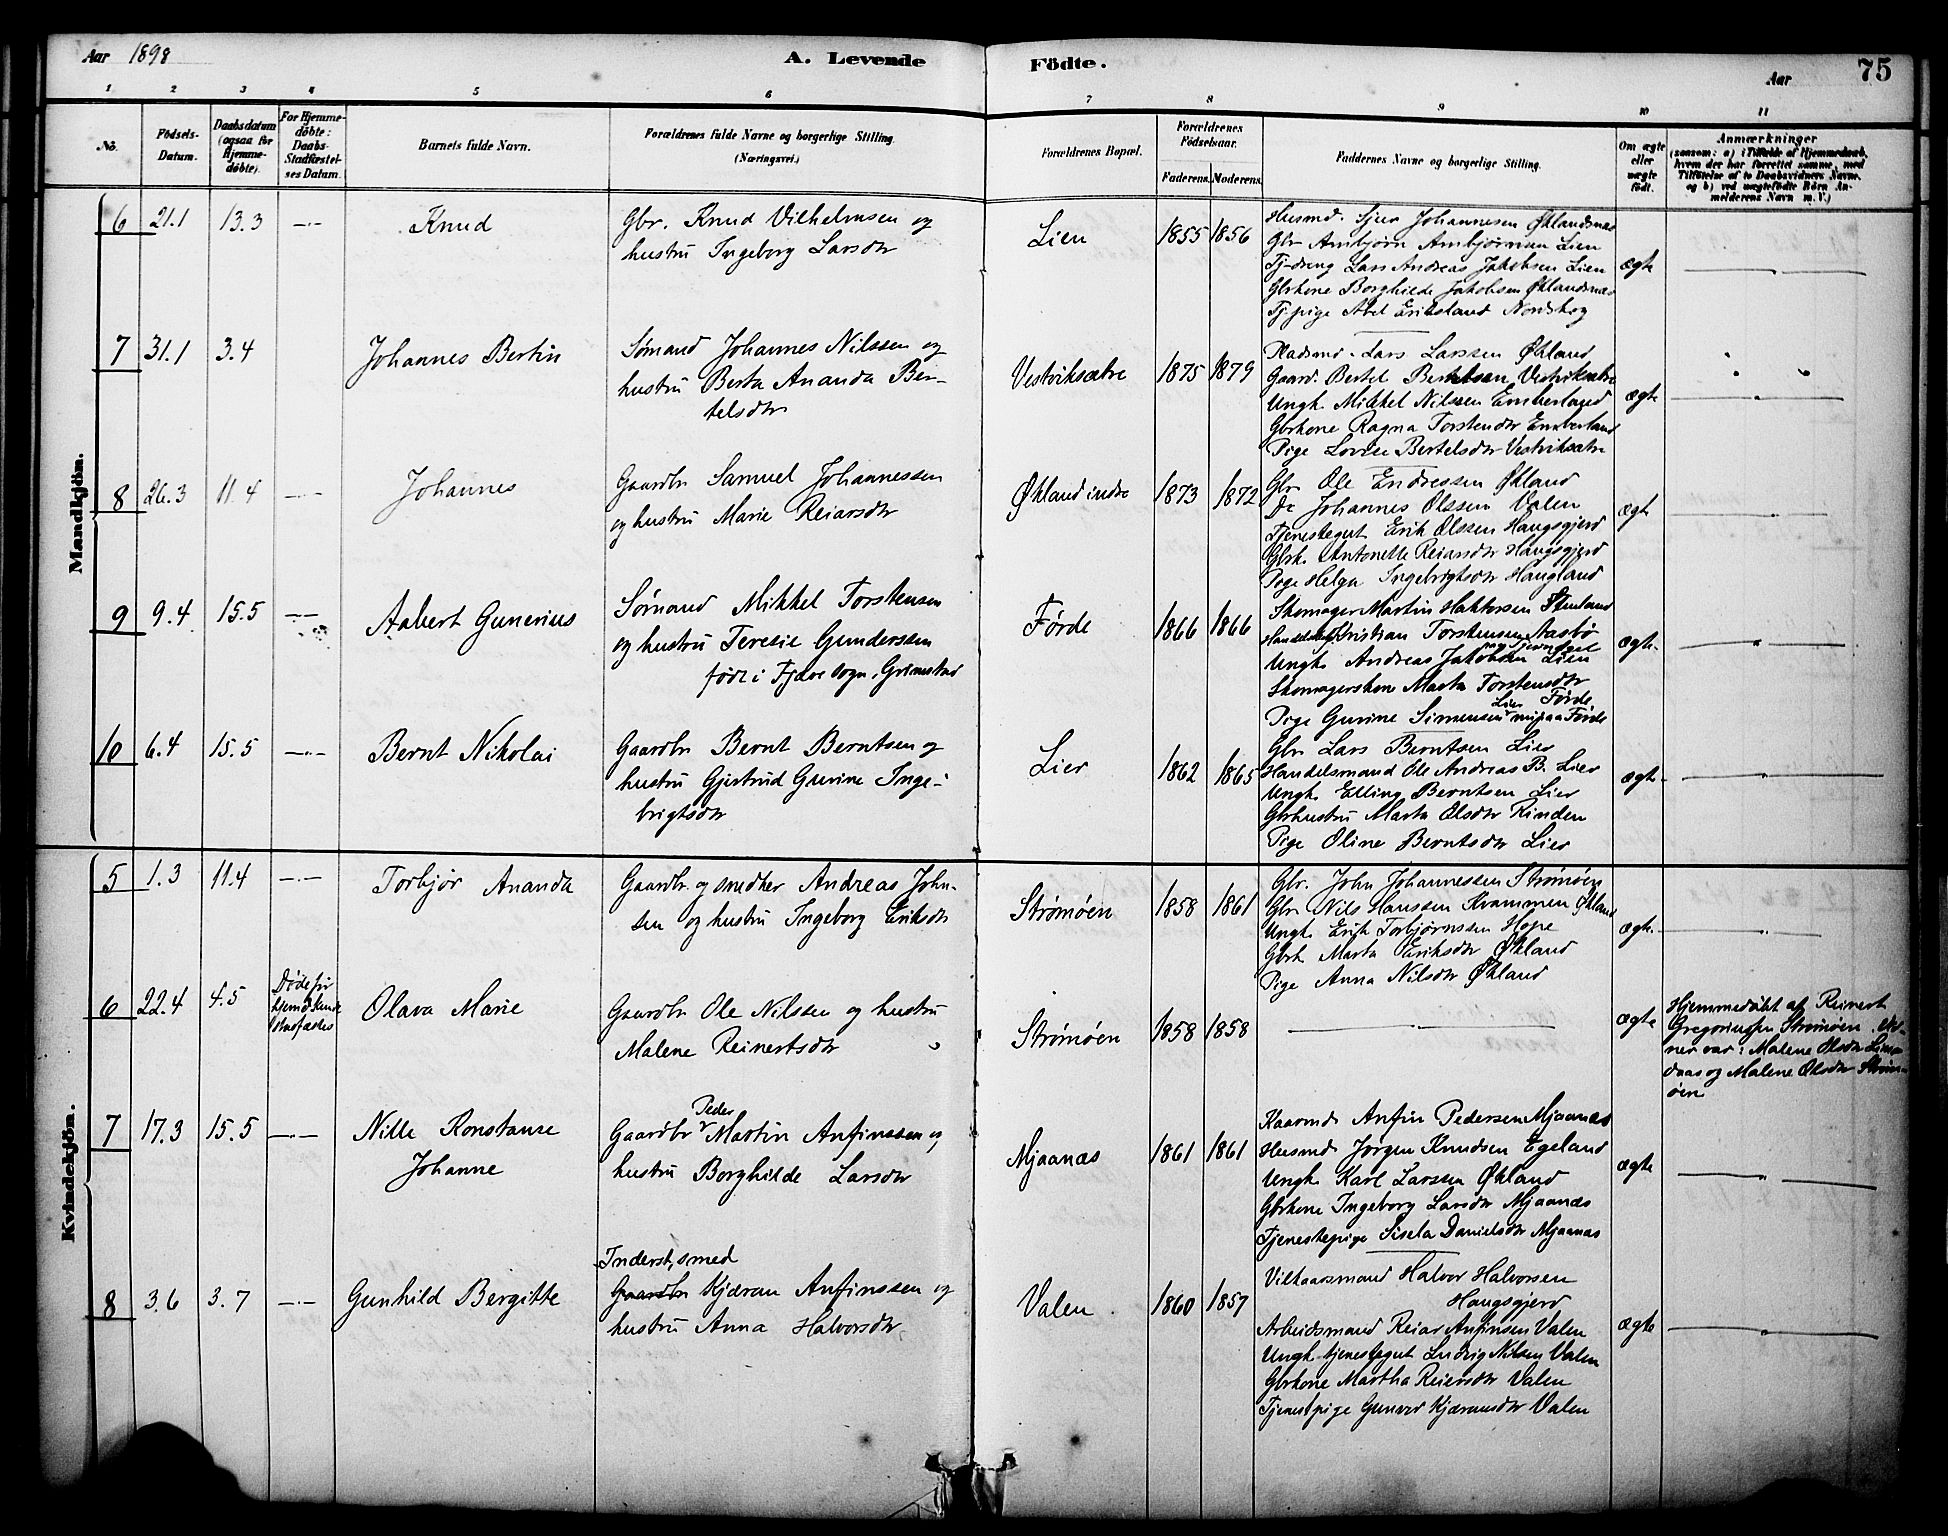 Aar 1898
A. Levende Födte.
Aar
75
1 2 3 4 5 6 7 8 9 10 11
No.
Födsels-Datum.
Daabsdatum (ogsaa for Hjemme-döbte).
For Hjemme-döbte: Daabs-Stadfæstel-ses Datum.
Barnets fulde Navn.
Forældrenes fulde Navne og borgerlige Stilling. (Næringsvei.)
Forældrenes Bopæl.
Forældrenes Födselsaar.
Faderens. Moderens.
Faddernes Navne og borgerlige Stilling.
Om ægte eller uægte födt.
Anmærkninger
(saasom: a) i Tilfælde af Hjemmedaab, hvem der har forrettet samme, med Tilföielse af to Daabsvidners Navne, og b) ved uægtefödte Börn An-melderens Navn m. V.)
Mandkjön.
6 21.1 13.3 —·— Knud
Gbr. Knud Vilhelmsen og
hustru Ingeborg Larsdtr
Lien 1855 1856
Husmd. Sjur Johannesen Øklandsnæs
Gbr Ambjørn Ambjørnsen Lien
Tj-dreng Lars Andreas Jakobsen Lien
Gbrkone Borghilde Jakobsen Øklandsnæs
Tj-pige Abel Eriksland Nordskog
ægte
7 31.1 3.4 Johannes Bertin
Sømand Johannes Nilssen og
hustru Berta Ananda Ber-
telsdtr
Vestviksætre 1875 1879
Pladsmd. Lars Larssen Økland
Gaard. Bertel Bertelsen Vestviksætre
Ungk. Mikkel Nilssen Emberland
Gbrkone Ragna Torstensdtr Emberland
Pige Lovise Bertelsdtr Vestviksætre
ægte
8 26.3 11.4 —·— Johannes
Gaardbr Samuel Johannessen
og hustru Marie Reiarsdtr
Økland indre 1873 1872
Gbr. Ole Endressen Økland
Do Johannes Olssen Valen
Tjenestegut Erik Olssen Haugsgjerd
Gbrk. Antonette Reiarsdtr Haugsgjerd
Pige Helga Ingebrigtsdtr Haugland
ægte
9 9.4 15.5 —·— Aabert Gunerius
Sømand Mikkel Torstensen
og hustru Teresie Gunderssen
født i Fjære sogn, Grimstad
Førde 1866 1866
Skomager Martin Haktorsen Stenland
Kristian Torstensen Aasbø
Ungk. Andreas Jakobsen Lien
Skomagerskone Marta Torstensdtr
Førde
Pige Gurine Simensen Lier nu paa Førde
ægte.
10 6.4 15.5 —·— Bernt Nikolai
Gaardbr Bernt Berntsen og
hustru Gjertrud Gurine Inge-
brigtsdtr
Lier 1862 1865
Gbr Lars Berntsen Lier
Handelsmand Ole Andreas B. Lier
Ungk. Elling Berntsen Lier
Gbrhustru Marta Olsdtr Rinden
Pige Oline Berntsdtr Lier
ægte
Kvindekjön.
5 1.3 11.4 —·— Torbjør Ananda
Gaardbr. og snedker Andreas John-
sen og hustru Ingeborg Eriksdtr
Strømøen 1858 1861
Gbr. John Johannessen Strømøen
Gbr Nils Hanssen Kvammen Økland
Ungk. Erik Torbjørnssen Hope
Gbrk Marta Eriksdtr Økland
Pige Anna Nilsdtr Økland
ægte.
6 22.4 4.5
Døde før
hjemd. kunde
stadfæstes
Olava Marie
Gaardbr Ole Nilssen og hustru
Malene Reinertsdtr
Strømøen 1858 1858
ægte
Hjemmedøbt af Reinert
Gregoriussen Strømøen. Vid-
ner var: Malene Olsdtr
og Malene Olsdtr Strøm-
øen
7 17.3 15.5 —·— Nille Konstanse
Johanne
Gaardbr Peder Martin Anfinssen og
hustru Borghilde Larsdtr
Mjaanæs 1861 1861
Kaarmd. Anfin Pedersen Mjaanæs
Husmd. Jørgen Knudsen Egeland
Ungk. Karl Larssen Økland
Gbrkone Ingeborg Larsdtr Mjaanæs
Tjenestepige Sisela Danielsdtr Mjaanæs
ægte
8 3.6 3.7 —·— Gunhild Bergitte
Inderst, smed
Gaardbr Kjæran Anfinssen og
hustru Anna Halvorsdtr
Valen 1860 1857
Vilkaarsmand Halvor Halvorsen
Haugsgjerd
Arbeidsmand Reiar Anfinsen Valen
Ungk. tjenestegut Ludvig Nilsen Valen
Gbrkone Martha Reiersdtr Valen
Tjenestpige Gunvor Kjæransdtr Valen
ægte